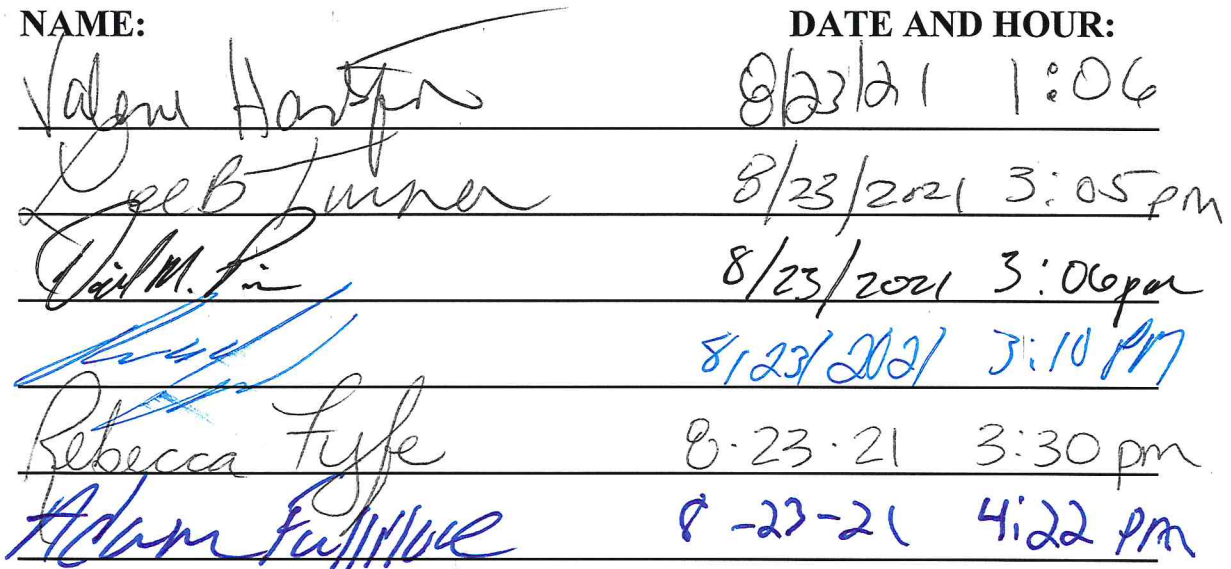 NAME: DATE AND HOUR:
8/23/21 1:06
Lee B Turner 8/23/2021 3:05 pm
M. 8/23/2021 3:06pm
8/23/2021 3:10 PM
Rebecca Fyfe 8-23-21 3:30 pm
Adam Fullilove 8-23-21 4:22 pm